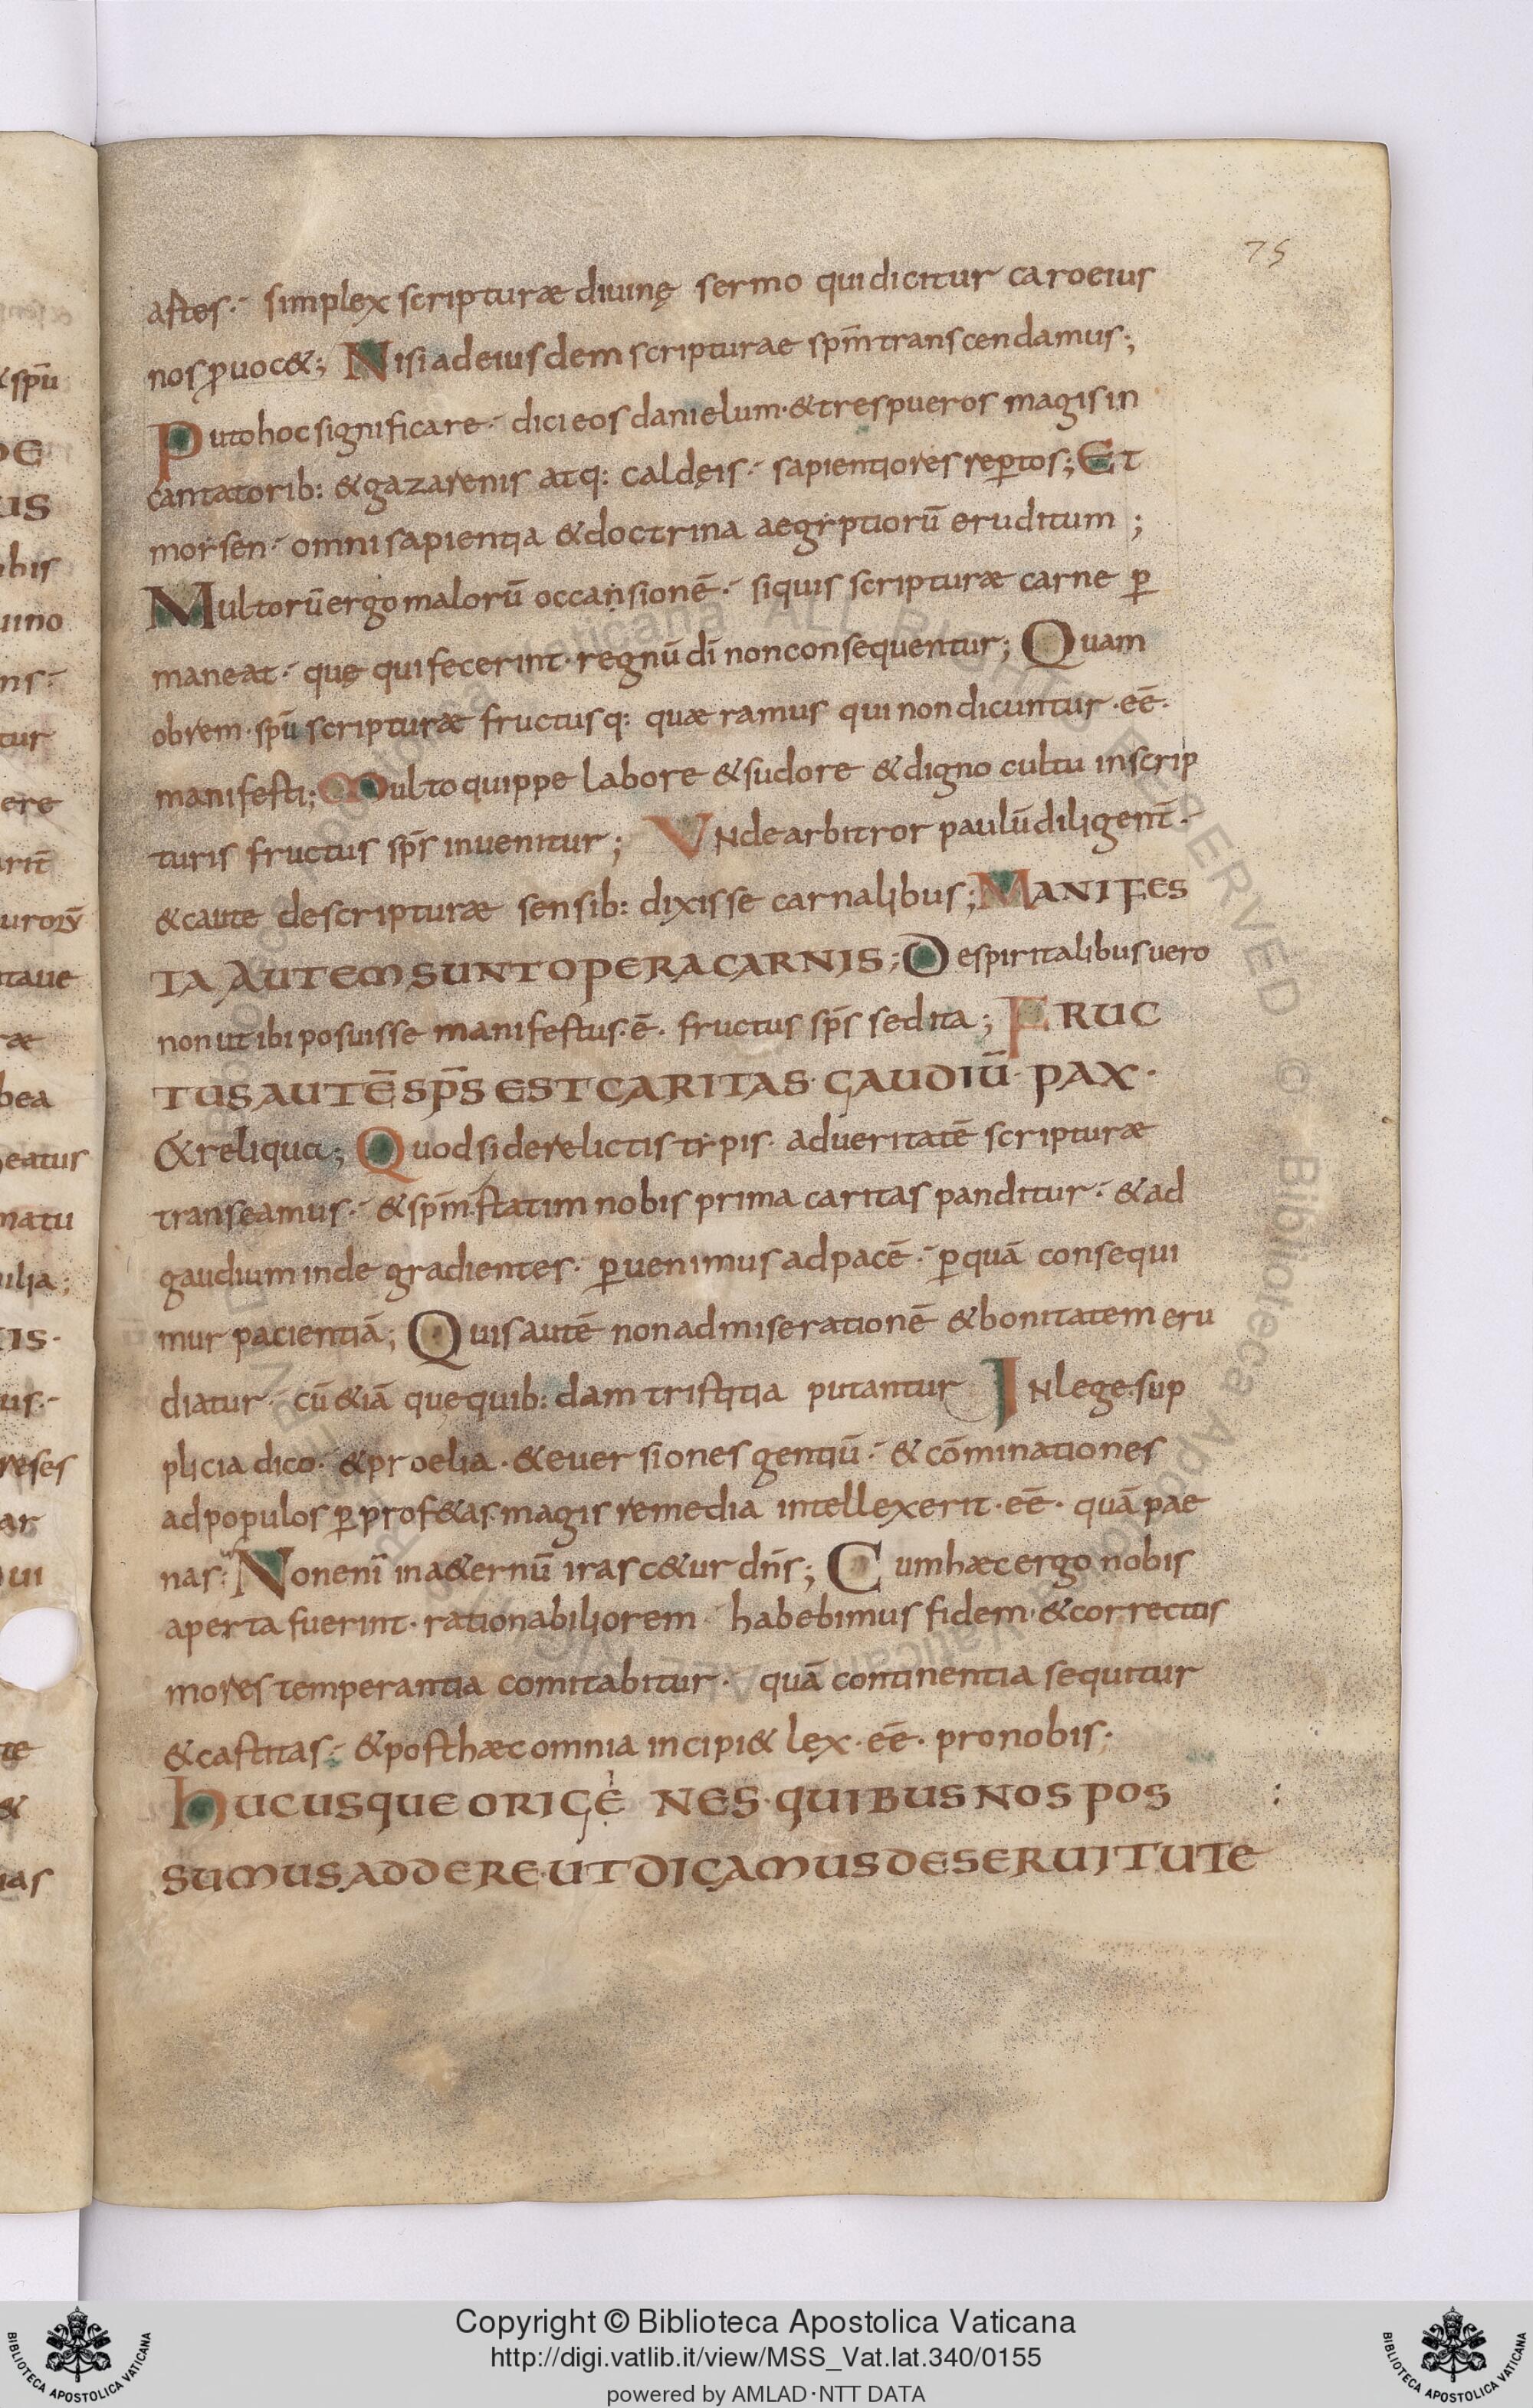 75
astes· simplex scripturæ diuinę sermo qui dicitur caro eius
nos ꝓuoc&; Nisi ad eiusdem scripturae spm̄ transcendamus;
Puto hoc significare· dici eos danielum· & tres pueros magis in
cantatorib: & gazarenis atq: caldęis· sapientiores reꝑtos; Et
moẏsen· omni sapientia & doctrina aegẏptiorū eruditum;
Multorū ergo malorū occansionē· siquis scripturæ carne ꝑ
maneat· quę qui fecerint· regnū dī non consequentur; Quam
obrem· spū scripturæ fructusq: quæramus qui non dicuntur· eē·
manifesti; Multo quippe labore & sudore & digno cultu in scrip
turis fructus sp̄s inuenitur; Vnde arbitror paulū diligent̄·
& caute de scripturæ sensib: dixisse carnalibus; MANIFES
TA AUTEM SUNT OPERA CARNIS; De spiritalibus uero
non ut ibi posuisse manifestus· ē· fructus sp̄s sed ita; FRUC
TUS AUTĒ SP̄S EST CARITAS· GAUDIŪ· PAX·
& reliqua; Quod si derelictis tẏpis· ad ueritatē scripturæ
transeamus· & spm̄· statim nobis prima caritas panditur· & ad
gaudium inde gradientes· ꝑuenimus ad pacē· ꝑ quā consequi
mur pacientiā; Quis autē non ad miserationē & bonitatem eru
diatur· cū &iā que quib:dam tristitia putantur In lege· sup
plicia dico· & proelia· & euersiones gentiū· & cōminationes
ad populos ꝑ prof&as· magis remedia intellexerit· eē· quā pae
nas· Non enī in a&ernū irasc&ur dn̄s; Cum hæc ergo nobis
aperta fuerint· rationabiliorem habebimus fidem· & correctus
mores temperantia comitabitur· quā continentia sequitur
& castitas· & post hæc omnia incipi& lex· eē· pro nobis·
HUCUSQUE ORIGENES· QUIBUS NOS POS
SUMUS ADDERE· UT DICAMUS DE SERUITUTE
Copyright © Biblioteca Apostolica Vaticana
http://digi.vatlib.it/view/MSS_Vat.lat.340/0155
powered by AMLAD·NTT DATA
BIBLIOTECA APOSTOLICA VATICANA
BIBLIOTECA APOSTOLICA VATICANA